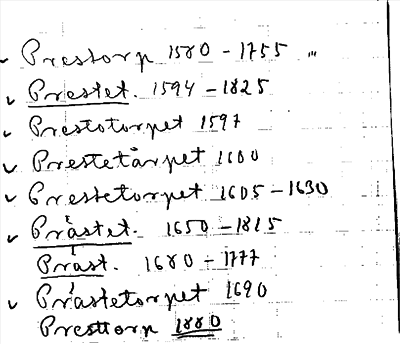 ✓ Prestorp 1580 - 1755 "
✓ Prestet. 1594 - 1825
✓ Prestotorpet 1597
✓ Prestetårpet 1600
✓ Prestetorpet 1605 - 1630
✓ Prästet. 1650 - 1815
Präst. 1680 - 1777
✓ Prästetorpet 1690
Presttorp 1880